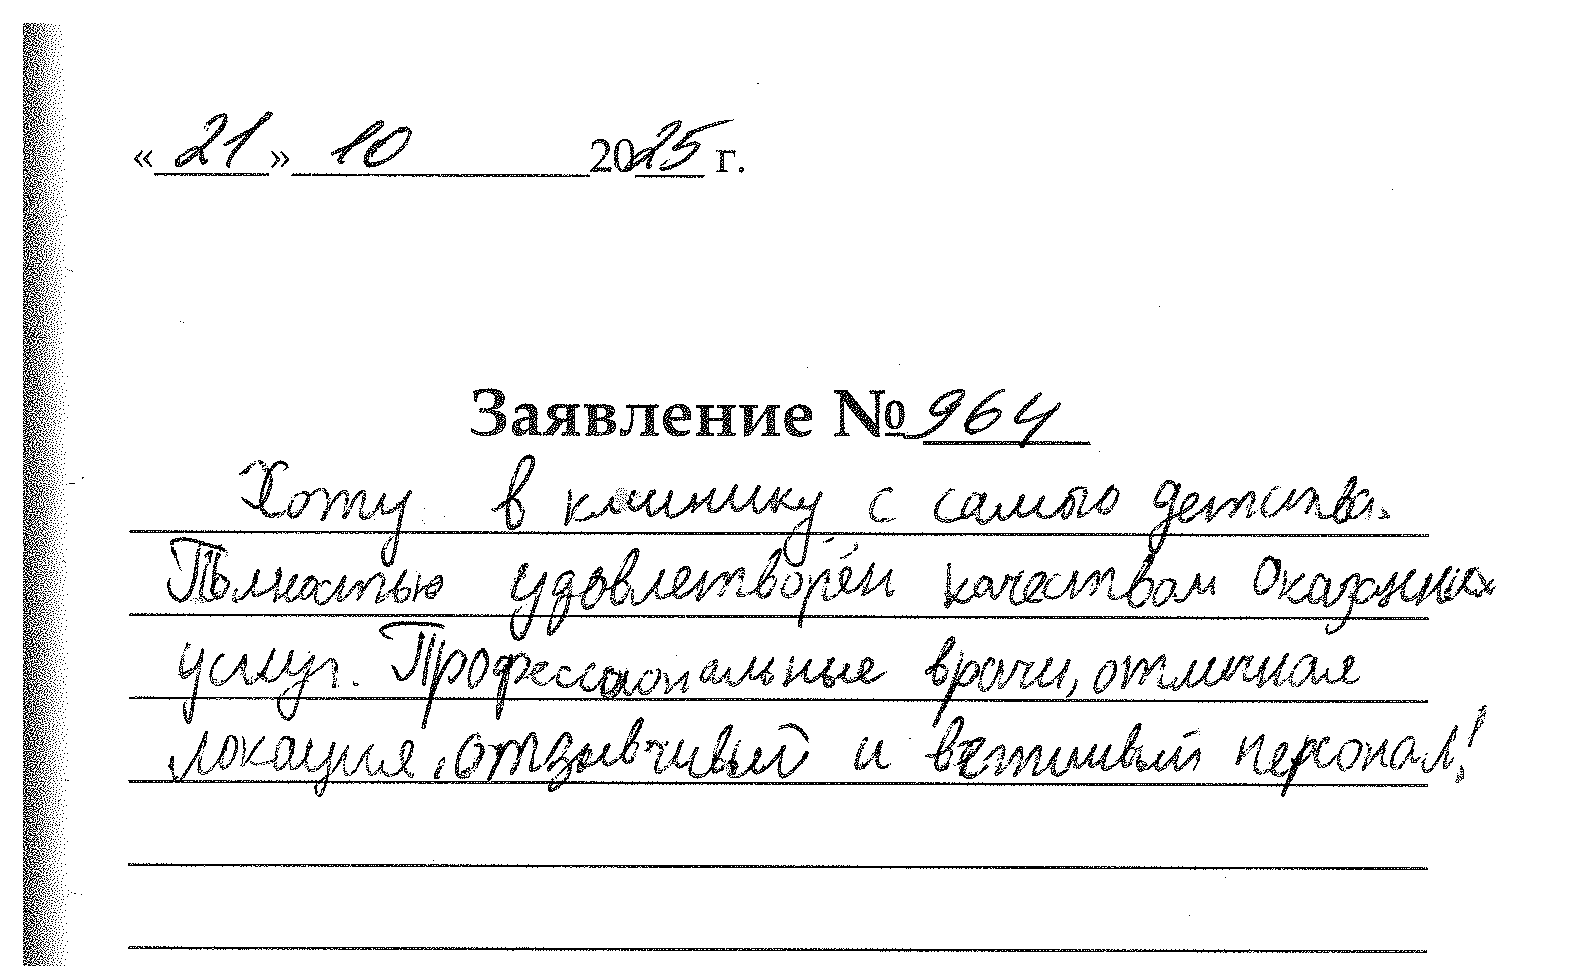 « 21 » 10 2025 г.
Заявление № 964
Хожу в клинику с самого детства.
Полностью удовлетворён качеством оказанных
услуг. Профессиональные врачи, отличная
локация, отзывчивый и вежливый персонал!